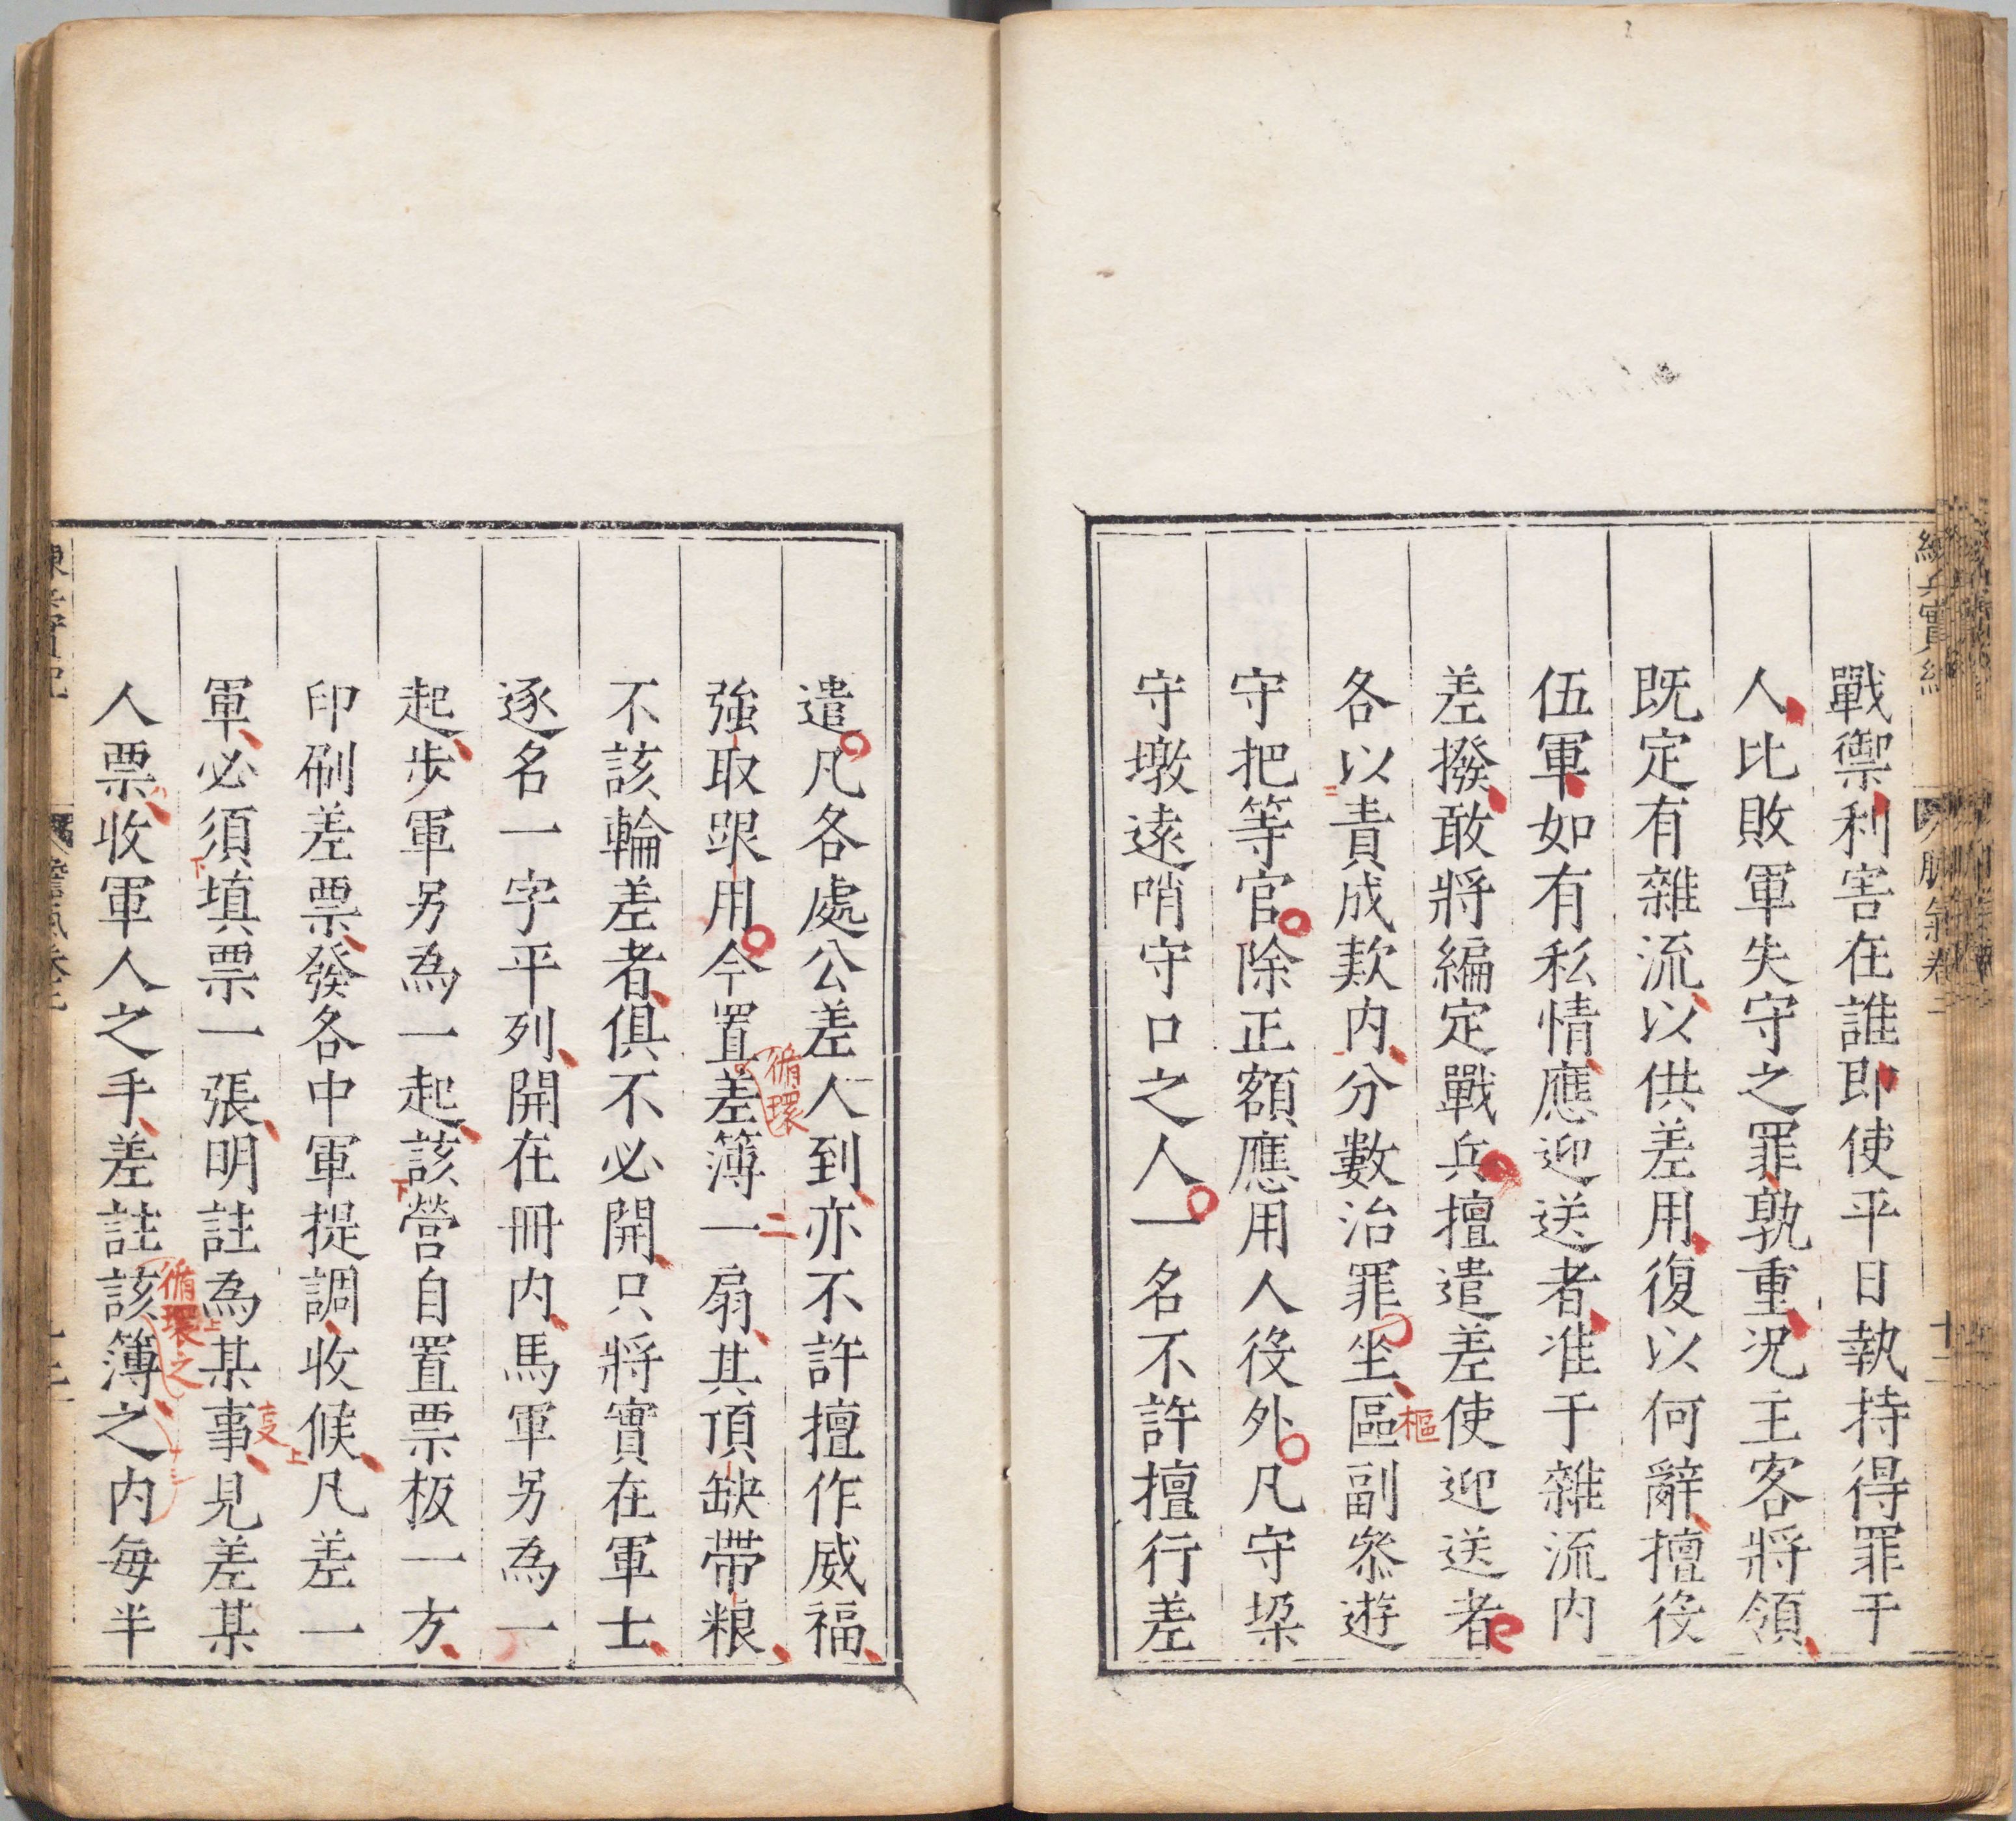 練兵實紀
戰禦利害在誰即使平日執持得罪于
人比敗軍失守之罪孰重况主客將領
既定有雜流以供差用復以何辭擅役
伍軍如有私情應迎送者准于雜流内
差撥敢將編定戰兵擅遣差使迎送者
各以責成款内分數治罪坐區副叅遊
樞
守把等官除正額應用人役外凡守垜
守墩遠哨守口之人一名不許擅行差
遣凡各處公差人到亦不許擅作威福
循環
二
強取跟用今置差簿一扇其頂缺帶粮
不該輪差者俱不必開只將實在軍士
逐名一字平列開在冊内馬軍另為一
起步軍另為一起該營自置票板一方
下
印刷差票發各中軍提調收候凡差一
上
軍必須填票一張明註為某事見差某
下
上
循環之
人票收軍人之手差註該簿之内每半